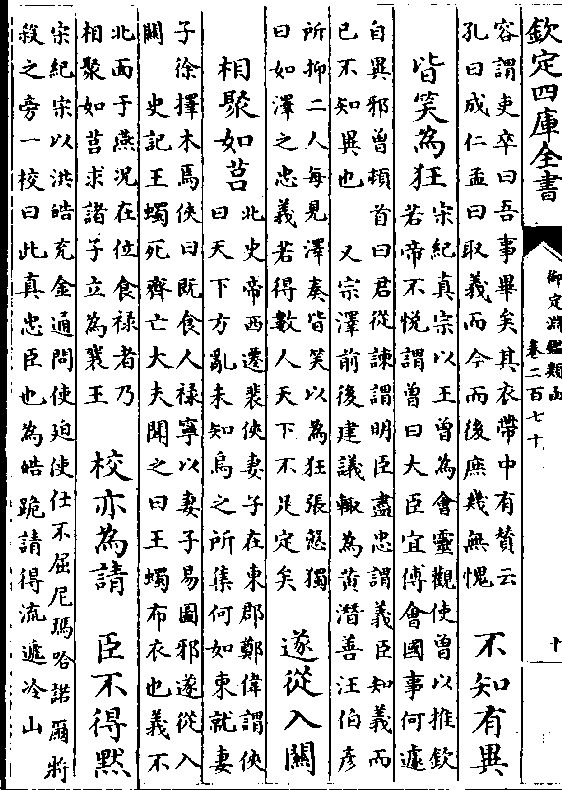 欽定四庫全書
御定淵鑑類函
卷二百七十
十
容謂吏卒曰吾事畢矣其衣帶中有贊云
孔曰成仁孟曰取義而今而後庶幾無愧
不知有異
宋紀真宗以王曾為會靈觀使曾以推欽
若帝不悦謂曾曰大臣宜傅會國事何遽
自異邪曾頓首曰君從諫謂明臣盡忠謂義臣知義而
已不知異也
皆笑為狂
又宗澤前後建議輙為黄潛善汪伯彦
所抑二人每見澤奏皆笑以為狂張慤獨
曰如澤之忠義若得數人天下不足定矣
遂從入闗
相聚如莒
北史帝西遷裴俠妻子在東郡鄭偉謂俠
曰天下方亂未知烏之所集何如東就妻
子徐擇木焉俠曰既食人禄寧以妻子易圖邪遂從入
闗
史記王蠋死齊亡大夫聞之曰王蠋布衣也義不
北面于燕况在位食禄者乃
相聚如莒求諸子立為襄王
校亦為請
臣不得黙
宋紀宗以洪皓充金通問使廹使仕不屈尼瑪哈諾爾將
殺之旁一校曰此真忠臣也為皓跪請得流遞冷山